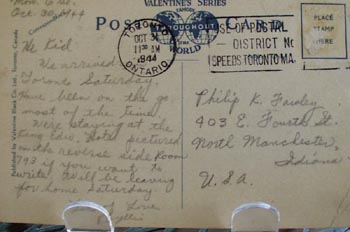 VALENTINE'S SERIES
POST CARD
FAMOUS
THROUGHOUT
THE WORLD
Published by Valentine
Toronto, Canada
Mon. Eve.
Oct. 30, 1944
We arrived
Toronto Saturday,
have been on the go
most of the time.
Were staying at the
King Edw. Hotel pictured
on the reverse side Room
793 if you want to
write. Will be leaving
for home Saturday.
Love
TORONTO
OCT 31
11 30 AM
1944
ONTARIO
USE OF POSTAL
DISTRICT No
SPEEDS TORONTO MA
PLACE
STAMP
HERE
Philip K. Fawley
403 E. Fourth St.
North Manchester,
Indiana
U.S.A.